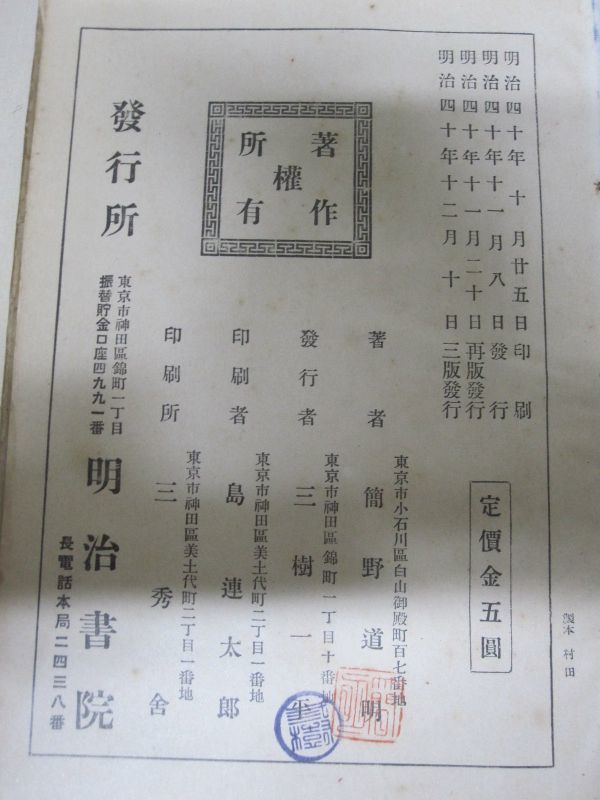 明治四十年十月廿五日印刷
明治四十年十一月八日發行
明治四十年十一月二十日再版發行
明治四十年十二月十日三版發行
定價金五圓
製本 村田
著作權所有
東京市小石川區白山御殿町百七番地
著者 簡野道明
東京市神田區錦町一丁目十番地
發行者 三樹一平
東京市神田區美土代町二丁目一番地
印刷者 島連太郎
東京市神田區美土代町二丁目一番地
印刷所 三秀舍
發行所
東京市神田區錦町一丁目
振替貯金口座四九九一番
明治書院
長電話本局二四三八番